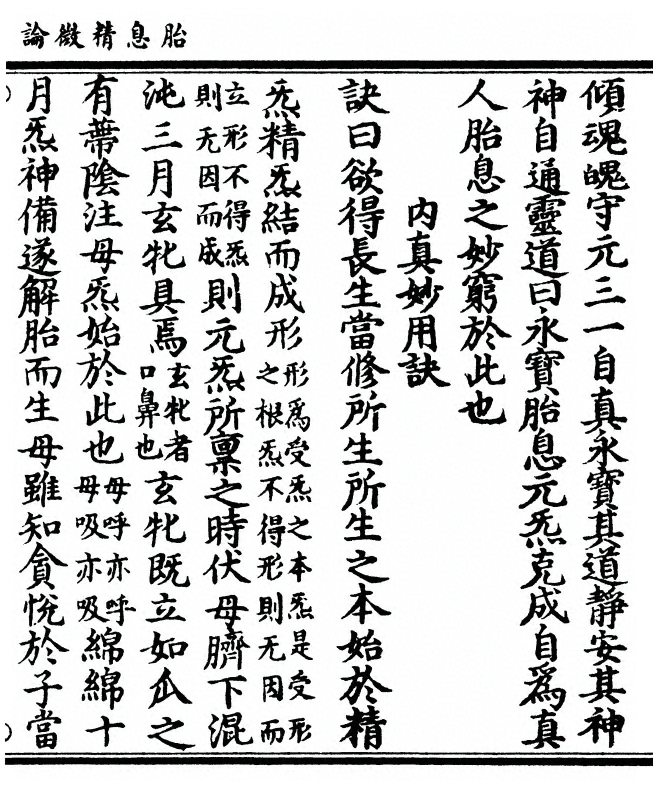 胎息精微論
傾魂魄守元三一自真永寶其道靜安其神
神自通靈道曰永寶胎息元炁克成自爲真
人胎息之妙窮於此也
內真妙用訣
訣曰欲得長生當修所生所生之本始於精
炁精炁結而成形形爲受炁之本炁是受形之根炁不得形則无因而
立形不得炁則无因而成則元炁所稟之時伏母臍下混
沌三月玄牝具焉玄牝者口鼻也玄牝既立如瓜之
有蔕陰注母炁始於此也母呼亦呼母吸亦吸綿綿十
月炁神備遂解胎而生母雖知貪悅於子當